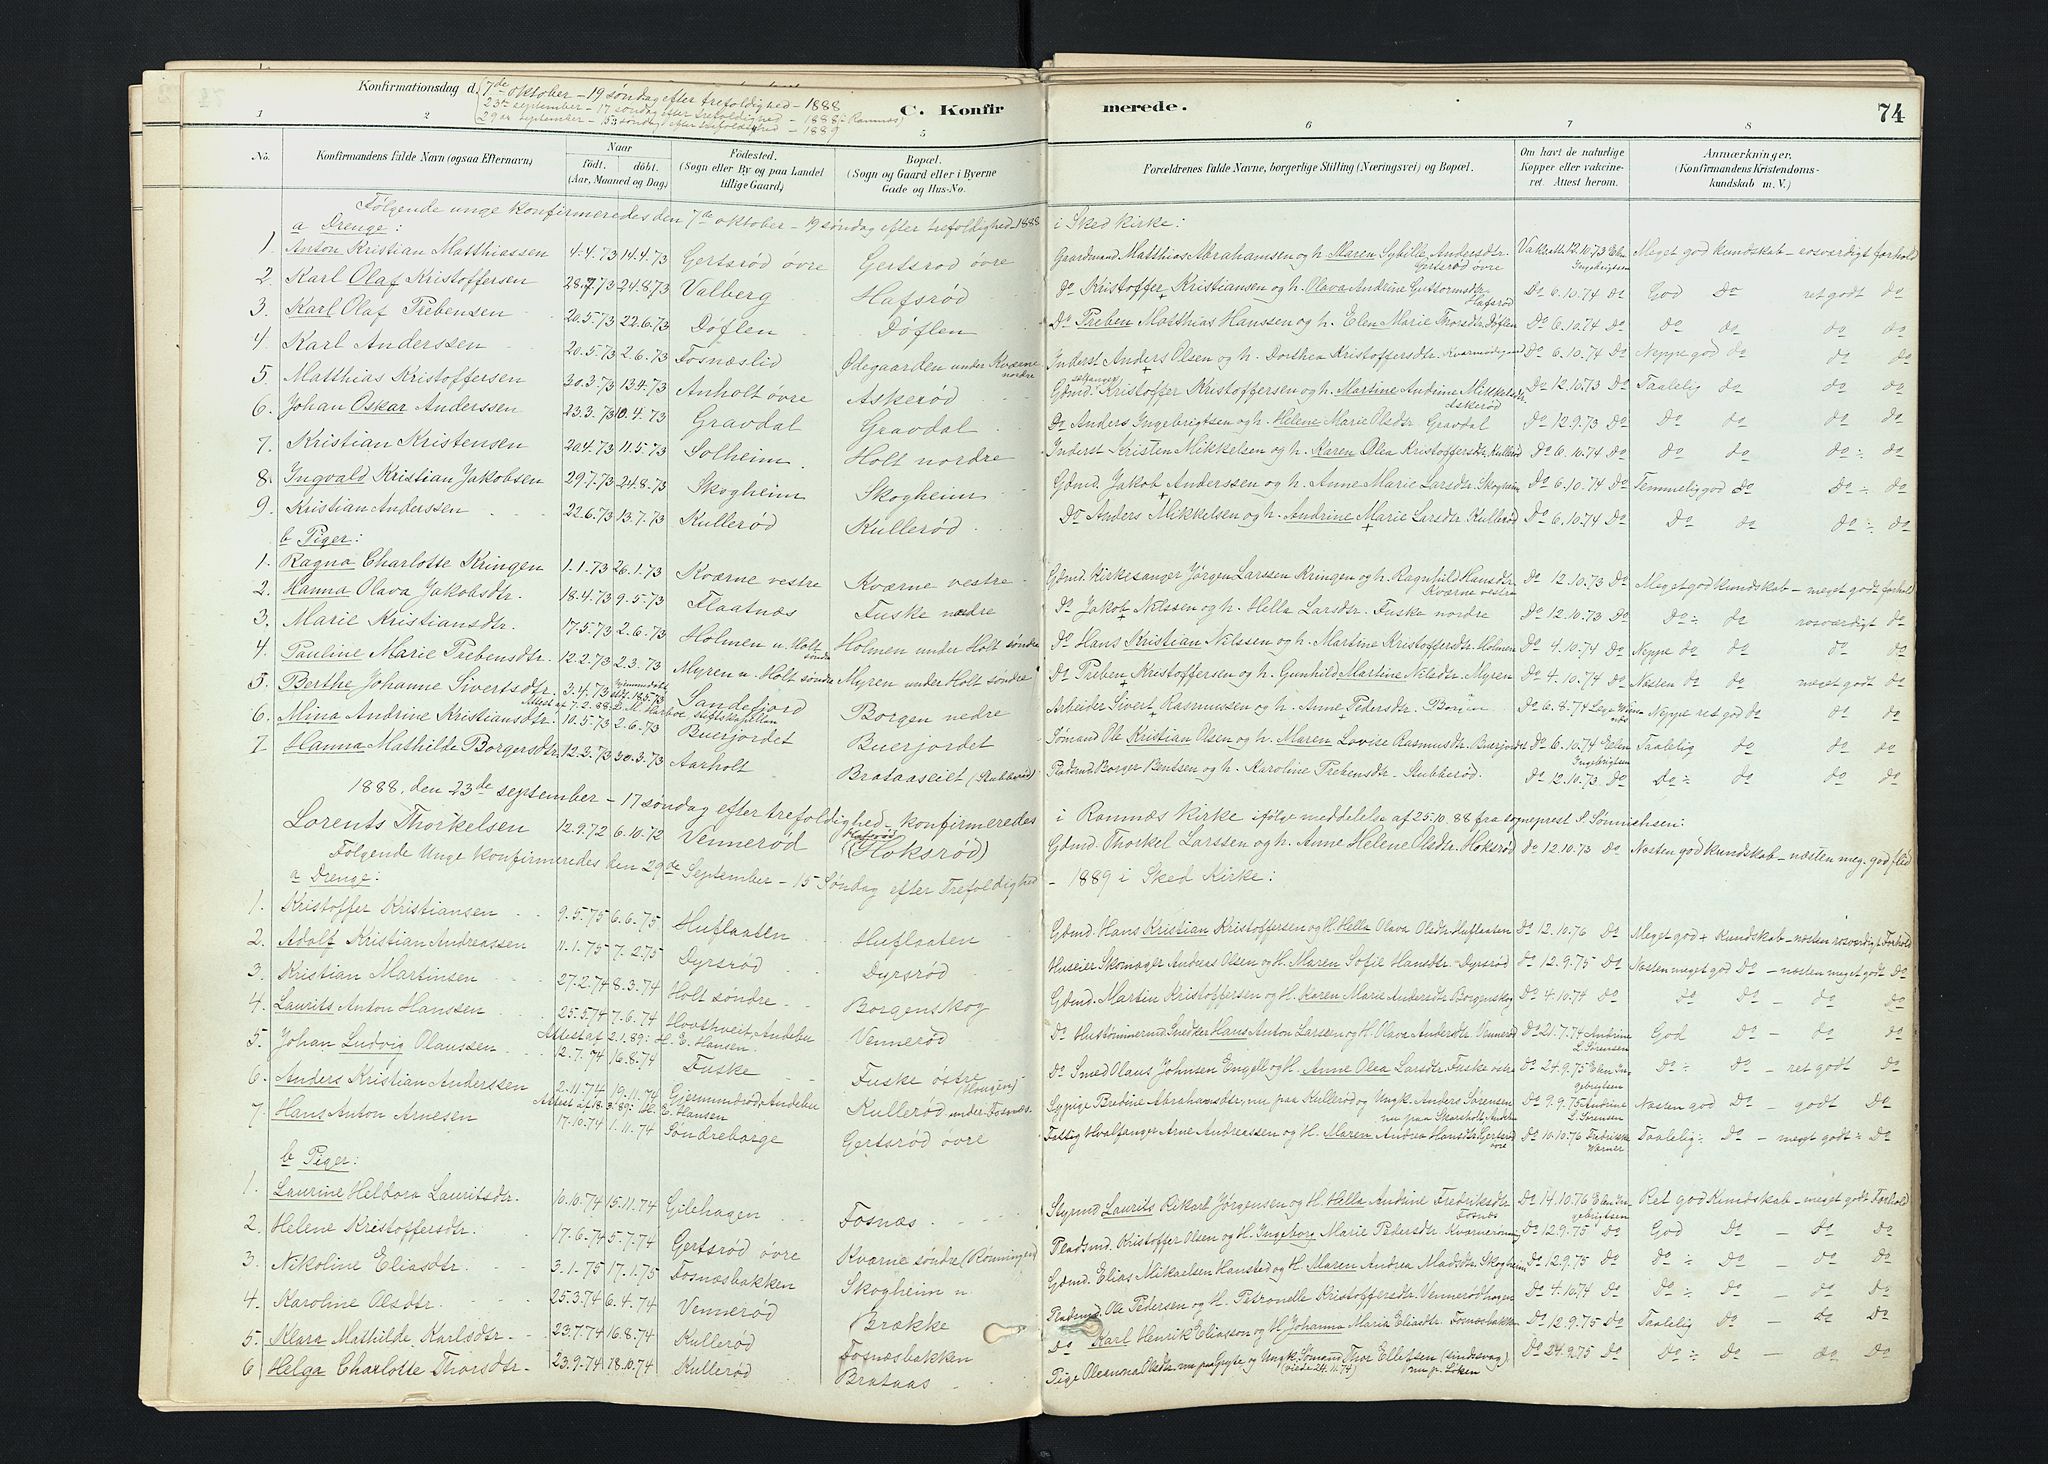 Konfirmationsdag d. 7de oktober – 19 søndag efter trefoldighed – 1888
23de september – 17 søndag efter trefoldighed – 1888 i Ramnæs
29de september – 15 søndag efter trefoldighed – 1889
C. Konfirmerede.
74
1 2 3 4 5 6 7 8
No. Konfirmandens fulde Navn (ogsaa Efternavn) Naar født. døbt. (Aar, Maaned og Dag) Fødested. (Sogn eller By og paa Landet tillige Gaard) Bopæl. (Sogn og Gaard eller i Byerne Gade og Hus-No. Forældrenes fulde Navne, borgerlige Stilling (Næringsvei) og Bopæl. Om havt de naturlige Kopper eller vakcineret. Attest herom. Anmærkninger, (Konfirmandens Kristendomskundskab m. V.)
Følgende unge konfirmeredes den 7de oktober – 19 søndag efter trefoldighed – 1888 i Sked kirke:
a Drenge:
1. Anton Kristian Matthiassen 4.4.73 14.4.73 Gertsrød øvre Gertsrød øvre Gaardmand Matthias Abrahamsen og h. Maren Sybille Andersdtr. Gertsrød øvre Vak.att. 12.10.73 Elen Ingebrigtsen Meget god kundskab – rosværdigt forhold
2. Karl Olaf Kristoffersen 28.7.73 24.8.73 Valberg Hafsrød Do Kristoffer Kristiansen og h. Olava Andrine Guttormsdtr. Hafsrød Do 6.10.74 Do God Do ret godt do
3. Karl Olaf Prebensen 20.5.73 22.6.73 Døflen Døflen Do Preben Matthias Hanssen og h. Elen Marie Thorsdtr. Døflen Do 6.10.74 Do Do do do do
4. Karl Anderssen 20.5.73 2.6.73 Fosnæslid Ødegaarden under Kværne nordre Inderst Anders Olsen og h. Dorthea Kristoffersdtr. Do 6.10.74 Do Neppe god do do do
5. Matthias Kristoffersen 30.3.73 13.4.73 Anholt øvre Askerød Gdmd. sælfanger Kristoffer Kristoffersen og h. Martine Andrine Mikkelsdtr. Askerød Do 12.10.73 Do Taalelig do do do
6. Johan Oskar Anderssen 23.3.73 10.4.73 Gravdal Gravdal Do Anders Ingebrigtsen og h. Helene Marie Olsdtr. Gravdal Do 12.9.73 Do Do do do do
7. Kristian Kristensen 20.4.73 11.5.73 Solheim Holt nordre Inderst Kristen Mikkelsen og h. Karen Olea Kristoffersdtr. Kullerød Do 6.10.74 Do do do do ÷ do
8. Ingvald Kristian Jakobsen 29.7.73 24.8.73 Skogheim Skogheim Gdmd. Jakob Anderssen og h. Anne Marie Larsdtr. Skogheim Do 6.10.74 Do Temmelig god do Do ÷ do
9. Kristian Anderssen 22.6.73 13.7.73 Kullerød Kullerød Do Anders Mikkelsen og h. Andrine Marie Larsdtr. Kullerød Do 6.10.74 Do Do do Do ÷ do
b Piger:
1. Ragna Charlotte Kringen 1.1.73 26.1.73 Kværne vestre Kværne vestre Gdmd. Kirkesanger Jørgen Larssen Kringen og h. Ragnhild Hansdtr. Kværne vestre Do 12.10.73 Do Meget god kundskab – meget godt forhold
2. Hanna Olava Jakobsdtr. 18.4.73 9.5.73 Flaatnæs Fuske nedre Do Jakob Nilssen og h. Hella Larsdtr. Fuske nordre Do 12.10.73 Do Do ÷ do rosværdigt do
3. Marie Kristiansdtr. 17.5.73 2.6.73 Holmen u. Holt søndre Holmen under Holt søndre Do Hans Kristian Nilssen og h. Martine Kristoffersdtr. Holmen Do 4.10.74 Do Neppe do do do do
4. Pauline Marie Prebensdtr. 12.2.73 2.3.73 Myren u. Holt søndre Myren under Holt søndre Do Preben Kristoffersen og h. Gunhild Martine Nilsdtr. Myren Do 4.10.74 Do Næsten do do meget godt do
5. Berthe Johanne Sivertsdtr. 3.4.73 hjemmedøbt 18.5.73 Attest af 7.2.88 Sandefjord Borgen nedre Arbeider Sivert Rasmussen og h. Anne Pedersdtr. Do 6.8.74 Neppe ret god do do do
6. Mina Andrine Kristiansdtr. 10.5.73 2.6.73 Buerjordet Buerjordet Sømand Ole Kristian Olsen og h. Maren Lovise Rasmusdtr. Buerjordet Do 6.10.74 Elen Ingebrigtsen Taalelig do do do
7. Hanna Mathilde Borgersdtr. 12.2.73 30.3.73 Aarholt Brataaseiet (Stubberød) Pladsmd. Borger Bentsen og h. Karoline Prebensdtr. Stubberød Do 12.10.73 Do Do ÷ do do do
1888, den 23de september – 17 søndag efter trefoldighed – konfirmeredes i Ramnæs Kirke ifølge meddelelse af 25.10.88 fra sogneprest S. Sønnichsen:
Lorents Thorkelsen 12.9.72 6.10.72 Vennerød Hafsrød (Hoksrød) Gdmd. Thorkel Larssen og h. Anne Helene Olsdtr. Hoksrød Do 12.10.73 Do Næsten god kundskab – næsten meg. god flid
Følgende Unge konfirmeredes den 29de September – 15 Søndag efter Trefoldighed – 1889 i Sked Kirke:
a Drenge:
1. Kristoffer Kristiansen 9.5.75 6.6.75 Huflaaten Huflaaten Gdmd. Hans Kristian Kristoffersen og H. Hella Olava Olsdtr. Huflaaten Do 12.10.76 Do Meget god + Kundskab – næsten rosværdigt Forhold
2. Adolf Kristian Andreassen 11.1.75 7.2.75 Dyrsrød Dyrsrød Huseier Skomager Andreas Olsen og H. Maren Sofie Hansdtr. Dyrsrød Do 12.9.75 Do Næsten meget god Do – næsten meget godt Do
3. Kristian Martinsen 27.2.74 8.3.74 Holt søndre Borgenskog Gdmd. Martin Kristoffersen og H. Karen Marie Andersdtr. Borgenskog Do 4.10.74 Do Do Do – do do
4. Laurits Anton Hanssen 25.5.74 7.6.74 Attest af 2.1.89: H. E. Hansen. Hvosthveit, Andebu Vennerød Do Snedker Hans Anton Larssen og H. Olava Andersdtr. Vennerød Do 21.7.74 Andrine L. Sørensen God Do – do do
5. Johan Ludvig Olaussen 12.7.74 16.8.74 Fuske Fuske østre (Haugen) Do Smed Olaus Johnsen Engell og H. Anne Olea Larsdtr. Fuske østre Do 24.9.75 Elen Ingebrigtsen Do ÷ Do – ret godt do
6. Anders Kristian Anderssen 2.11.74 19.11.74 Attest af 18.3.89: H. E. Hansen Gjermundrød, Andebu Kullerød under Fosnæs. Sypige Bredine Abrahamsdtr., nu paa Kullerød og Ungk. Anders Sørensen Do 9.9.75 Andrine L. Sørensen Næsten god Do – godt Do
7. Hans Anton Arnesen 17.10.74 1.11.74 Søndreborge Gertsrød øvre Fattig Hvalfanger Arne Andreassen og H. Maren Andrea Hansdtr. Gertsrød øvre Do 10.10.76 Fredrikke Warner Taalelig ÷ Do – meget godt ÷ Do
b Piger:
1. Laurine Heldora Lauritsdtr. 10.10.74 15.11.74 Gilehagen Fosnæs Styrmd. Laurits Rikart Jørgensen og H. Hella Andrine Fredriksdtr. Fosnæs Do 14.10.76 Elen Ingebrigtsen Ret god Kundskab – meget godt Forhold
2. Helene Kristoffersdtr. 17.6.74 5.7.74 Gertsrød øvre Kværne søndre (Rønningen) Pladsmd. Kristoffer Olsen og H. Ingeborg Marie Pedersdtr. Do 12.9.75 Do God Do – Do Do
3. Nikoline Eliasdtr. 3.1.75 17.1.75 Fosnæsbakken Skogheim n. Gdmd. Elias Mikaelsen Hansted og H. Maren Andrea Madsdtr. Skogheim Do 12.9.75 Do Do ÷ Do – do Do
4. Karoline Olsdtr. 25.3.74 6.4.74 Vennerød Brække Pladsmd. Ole Pedersen og H. Petronelle Kristoffersdtr. Vennerødhagen Do 4.10.74 Do Do ÷ Do – do Do
5. Klara Mathilde Karlsdtr. 23.7.74 16.8.74 Kullerød Fosnæsbakken Do Karl Henrik Eliasson og H. Johanna Maria Eliasdtr. Fosnæsbakken Do 12.9.75 Do Taalelig Do – Do Do
6 Helga Charlotte Thorsdtr. 23.9.74 18.10.74 Kullerød Brataas Pige Oleanna Olsdtr. nu paa Gryte og Ungk. Sømand Thor Ellefsen (viede 24.11.74) nu p. Løken Do 24.9.75 Do Do ÷ Do – do Do